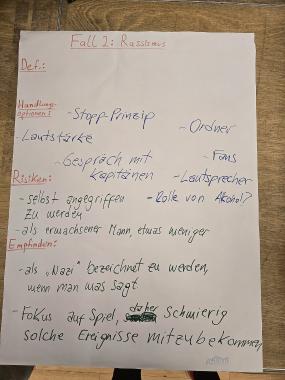 Fall 2: Rassismus
Def.:
Handlungs-
optionen:
- Stopp-Prinzip
- Ordner
- Lautstärke
- Gespräch mit
Kapitänen
- Fans
- Lautsprecher
Risiken:
- selbst angegriffen
zu werden
- Rolle von Alkohol?
- als erwachsener Mann, etwas weniger
Empfinden:
- als „Nazi" bezeichnet zu werden,
wenn man was sagt
- Fokus auf Spiel, daher schwierig
solche Ereignisse mitzubekommen